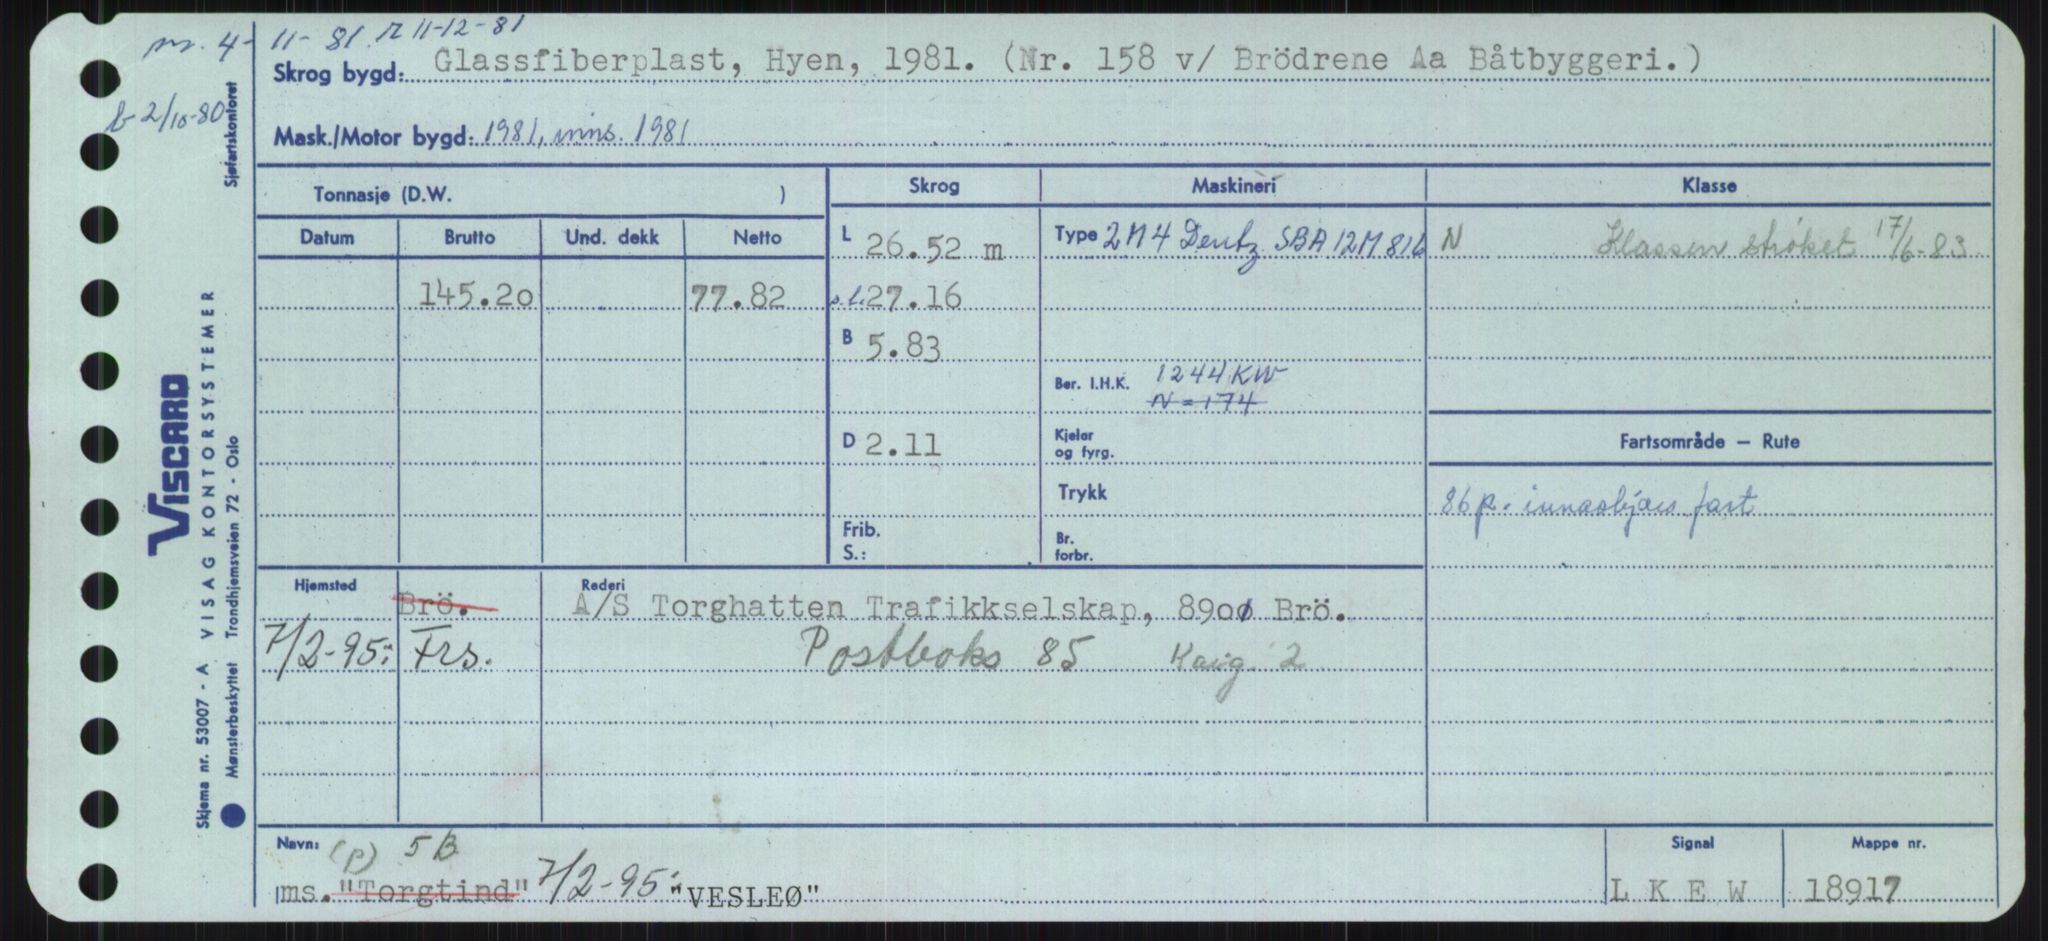 pr. 4-11-81 r 11-12-81
Skrog bygd: Glassfiberplast, Hyen, 1981. (Nr. 158 v/ Brödrene Aa Båtbyggeri.)
b 2/10-80
Sjøfartskontoret
Mask./Motor bygd: 1981, inns. 1981
Tonnasje (D.W. )
Skrog
Maskineri
Klasse
Datum Brutto Und. dekk Netto
L 26.52 m
Type 2 M 4 Deutz SBA 12M 816
N Klassen strøket 17/6-83
145.20 77.82
s.l. 27.16
B 5.83
Ber. I.H.K. 1244 KW
N = 174
D 2.11
Kjeler
og fyrg.
Fartsområde – Rute
Trykk
86 p. innaskjærs fart
Frib.
S.:
Br.
forbr.
Hjemsted
Rederi
Brö. A/S Torghatten Trafikkselskap, 8900 Brö.
7/2-95: Frs. Postboks 85
VISCARD
VISAG KONTORSYSTEMER
Skjema nr. 53007 - A
Mønsterbeskyttet Trondhjemsveien 72 - Oslo
Navn: (p) 5B
Signal
Mappe nr.
ms. "Torgtind" 7/2-95: "VESLEØ"
L K E W
18917